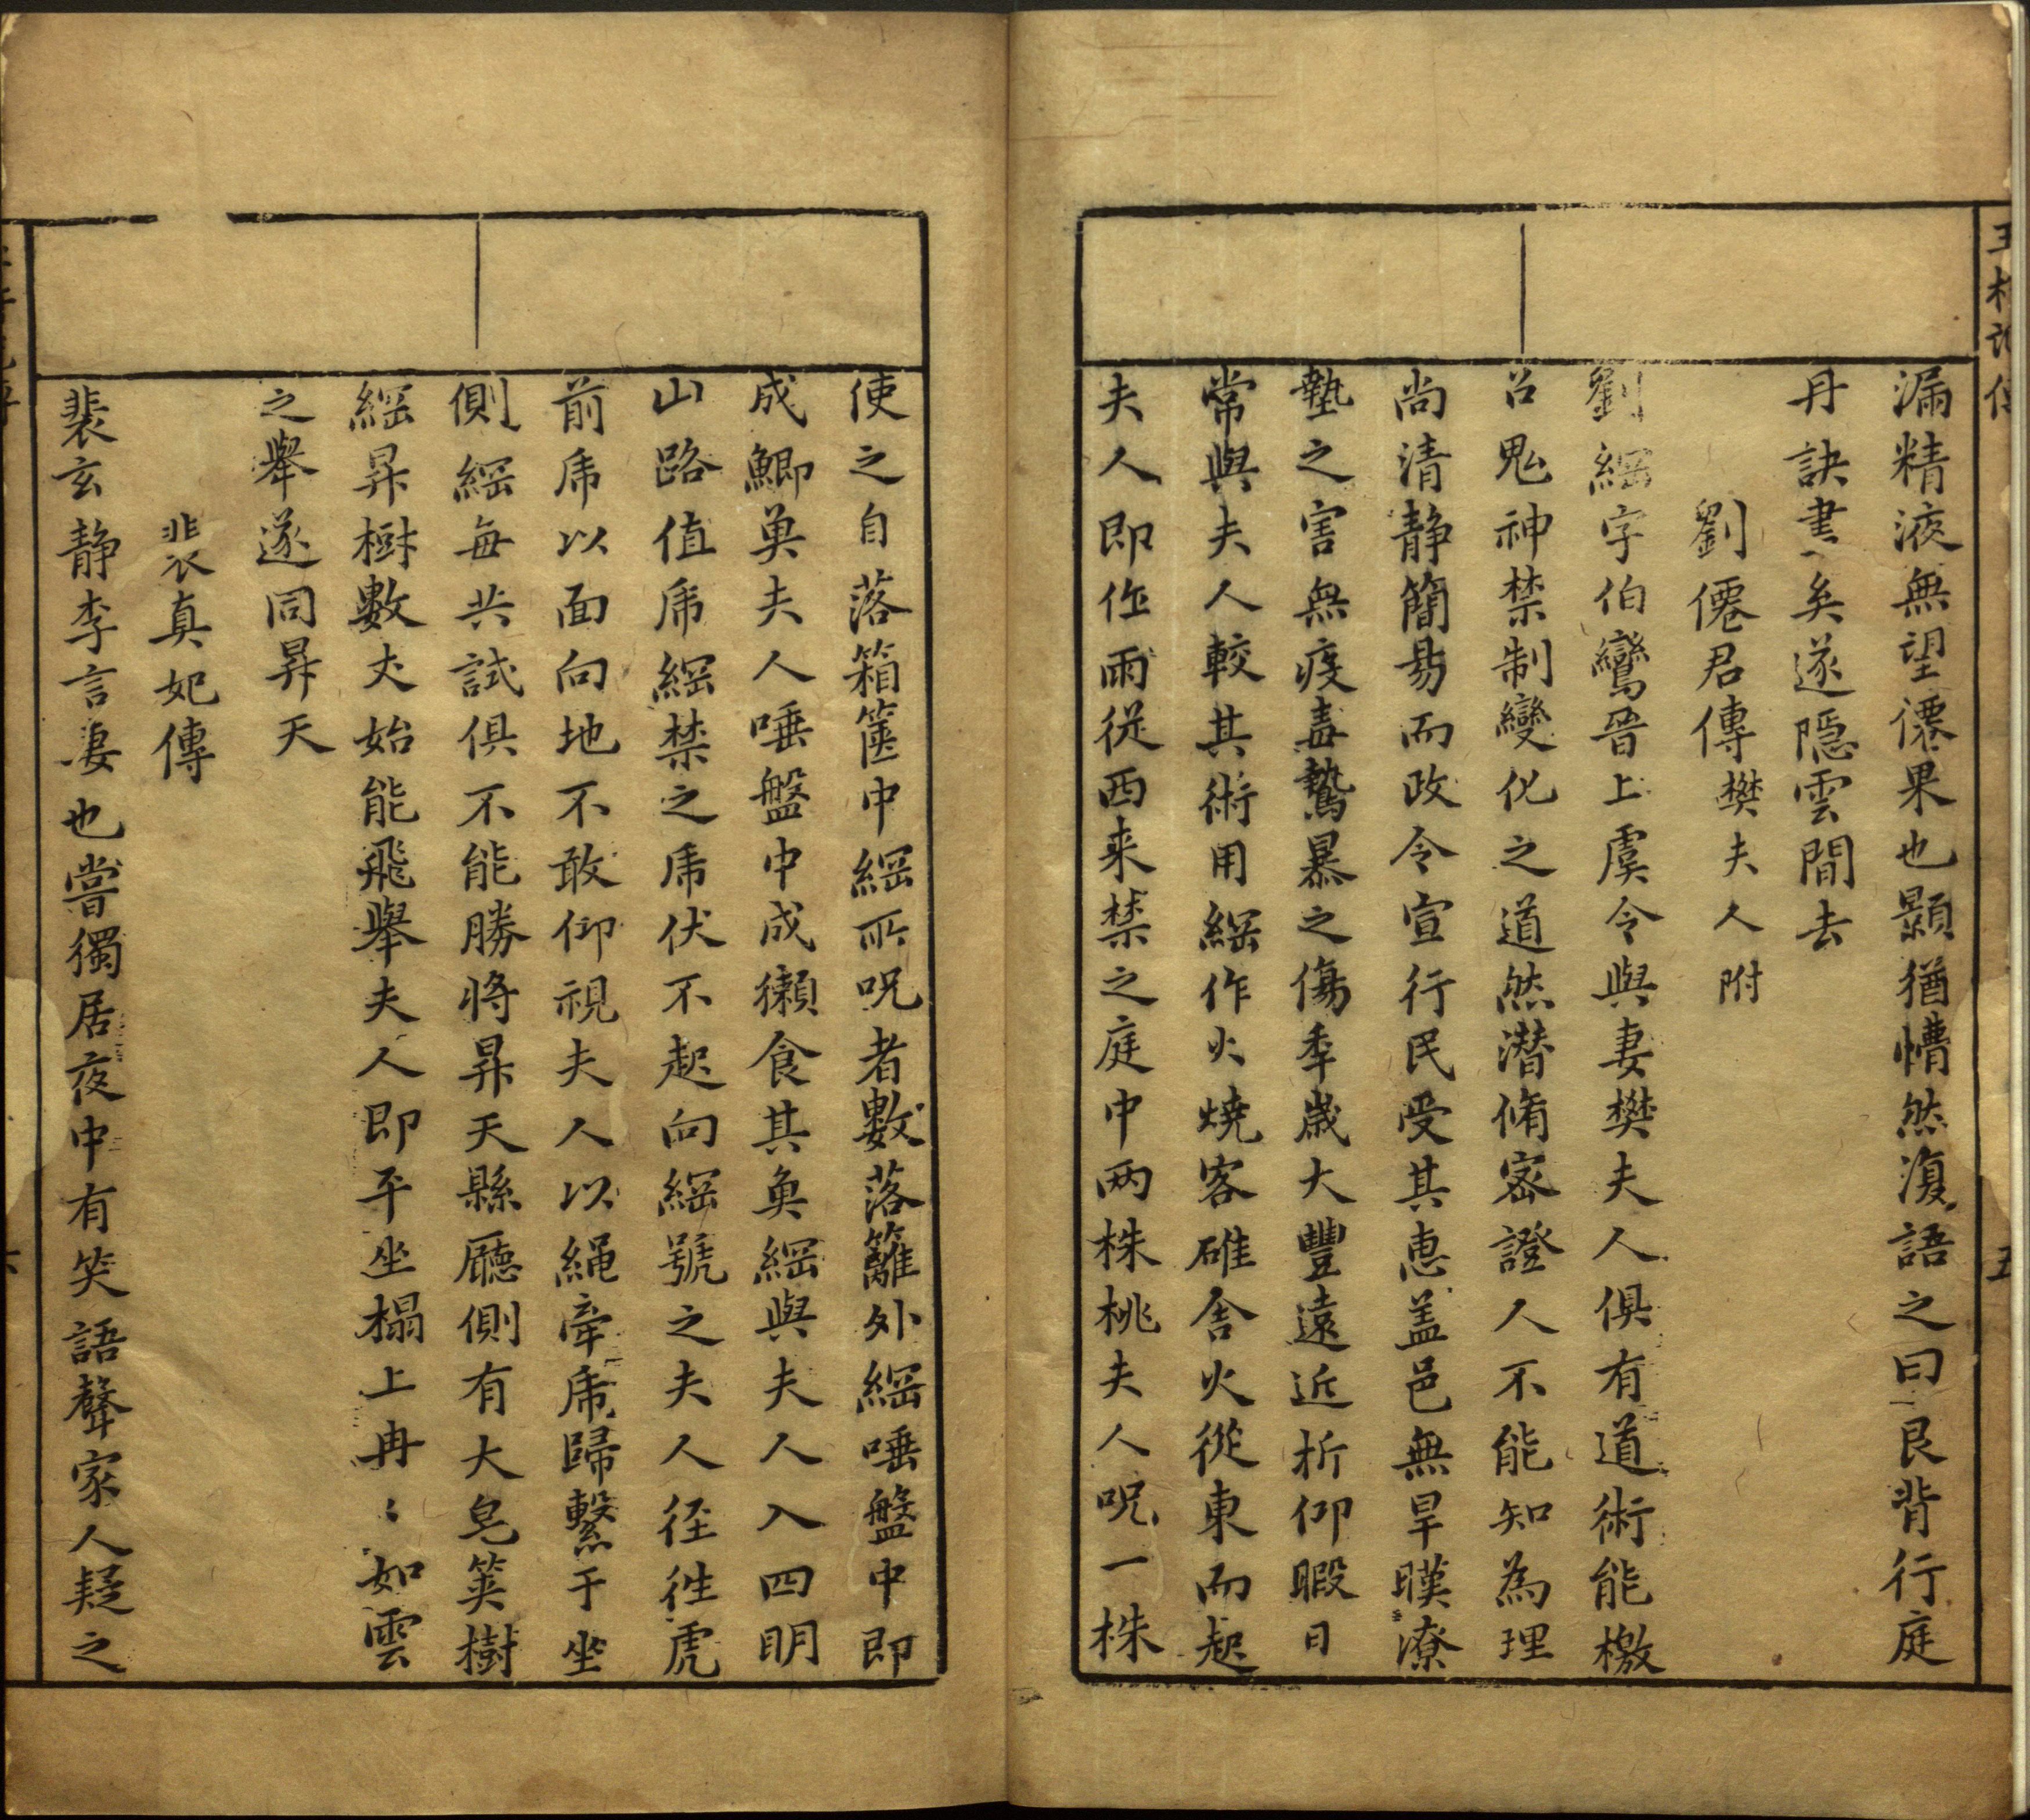 漏精液無望僊果也顥猶懵然復語之曰艮背行庭
丹訣書𠃔矣遂隱雲間去
劉僊君傳 樊夫人附
劉綱字伯鸞晉上虞令與妻樊夫人俱有道術能檄
召鬼神禁制變化之道然潛脩密證人不能知為理
尚清静簡易而政令宣行民受其惠盖邑無旱暵潦
墊之害無疫毒鷙暴之傷季歲大豐遠近析仰暇日
常與夫人較其術用綱作火燒客碓舍火從東而起
夫人即作雨從西来禁之庭中兩株桃夫人呪一株
使之自落箱篋中綱所呪者數落籬外綱唾盤中即
成鯽奐夫人唾盤中成獺食其奐綱與夫人入四明
山路值虎綱禁之虎伏不起向綱號之夫人徑徃虎
前虎以面向地不敢仰視夫人以繩牽虎歸繫于坐
側綱每共試俱不能勝將昇天縣廳側有大皂筴樹
綱昇樹數丈始能飛舉夫人即平坐榻上冉〻如雲
之舉遂同昇天
裴真妃傳
裴玄静李言妻也嘗獨居夜中有笑語聲家人疑之
五